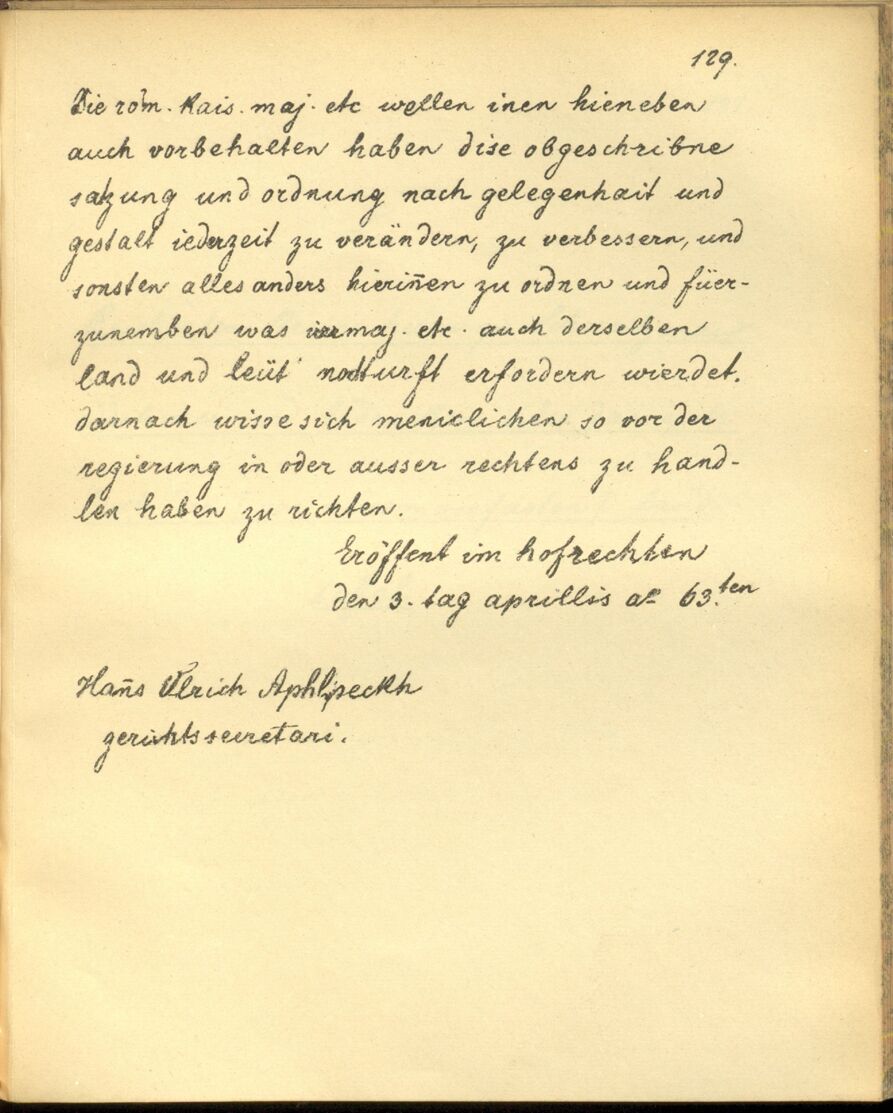 129.
Die röm. Kais. maj. etc wellen inen hieneben
auch vorbehalten haben dise obgeschribne
satzung und ordnung nach gelegenhait und
gestalt iederzeit zu verändern, zu verbessern, und
sonsten alles anders hieriñen zu ordnen und füer-
zunemben was irer maj. etc. auch derselben
land und leüt notturft erfordern wierdet.
darnach wisse sich meniclichen so vor der
regierung in oder ausser rechtens zu hand-
len haben zu richten.
Eröffent im hofrechten
den 3. tag aprillis aº 63.ten
Hañs Ulrich
gerichtssecretari.